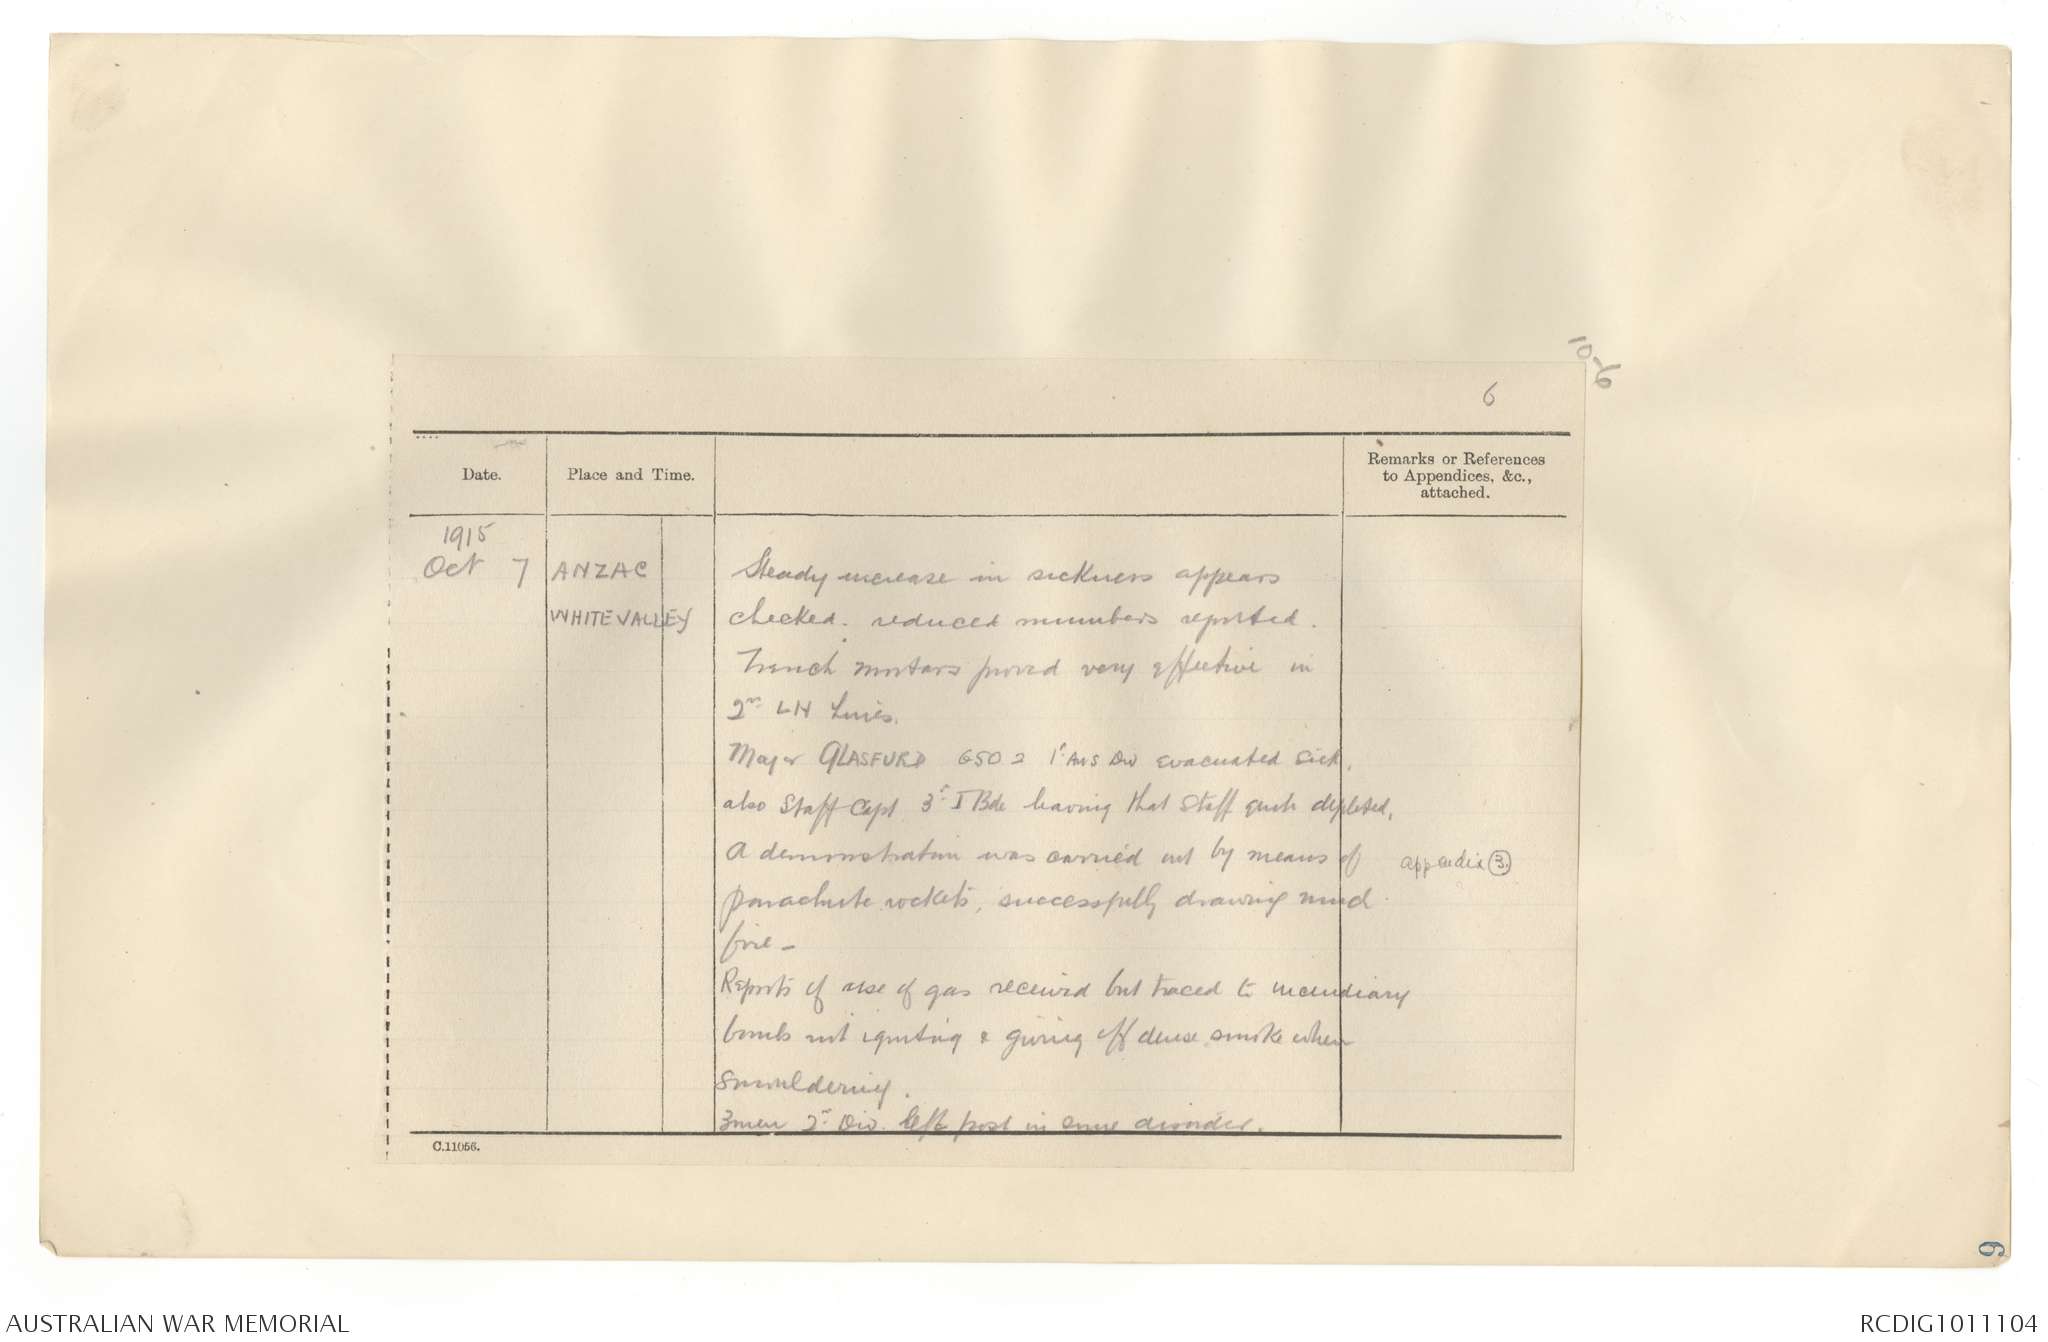 10-6
6
Date.
Place and Time.
Remarks or References
to Appendices, &c.,
attached.
1915
Oct 7
ANZAC
WHITE VALLEY
Steady increase in sickness appears
checked. reduced numbers reported.
Trench mortars proved very effective in
2nd LH Lines.
Major GLASFURD GSO 2 1st Aus Div evacuated sick,
also Staff Capt 3rd I Bde leaving that Staff much depleted.
A demonstration was carried out by means of
parachute rockets, successfully drawing much
fire -
appendix 3.
Reports of use of gas received but traced to incendiary
bombs not igniting & giving off dense smoke when
smouldering.
3 men 2nd Div. left post in some disorder.
C.11056.
6
AUSTRALIAN WAR MEMORIAL
RCDIG1011104